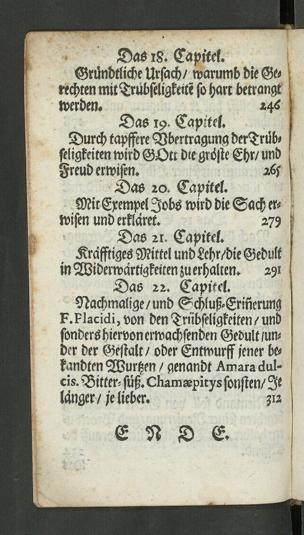 Das 18. Capitel.
Gründtliche Ursach/ warumb die Ge-
rechten mit Trübseligkeitē so hart betrangt
werden. 246
Das 19. Capitel.
Durch tapffere Vbertragung der Trüb-
seligkeiten wird GOtt die gröste Ehr/ und
Freud erwisen. 265
Das 20. Capitel.
Mit Exempel Jobs wird die Sach er-
wisen und erkläret. 279
Das 21. Capitel.
Kräfftiges Mittel und Lehr/die Gedult
in Widerwärtigkeiten zu erhalten. 291
Das 22. Capitel.
Nachmalige/ und Schluß-Eriñerung
F. Placidi, von den Trübseligkeiten/ und
sonders hiervon erwachsenden Gedult/un-
der der Gestalt/ oder Entwurff jener be-
kandten Wurtzen/ genandt Amara dul-
cis. Bitter-süß. Chamæpitys sonsten/ Je
länger/ je lieber. 312
E N D E.